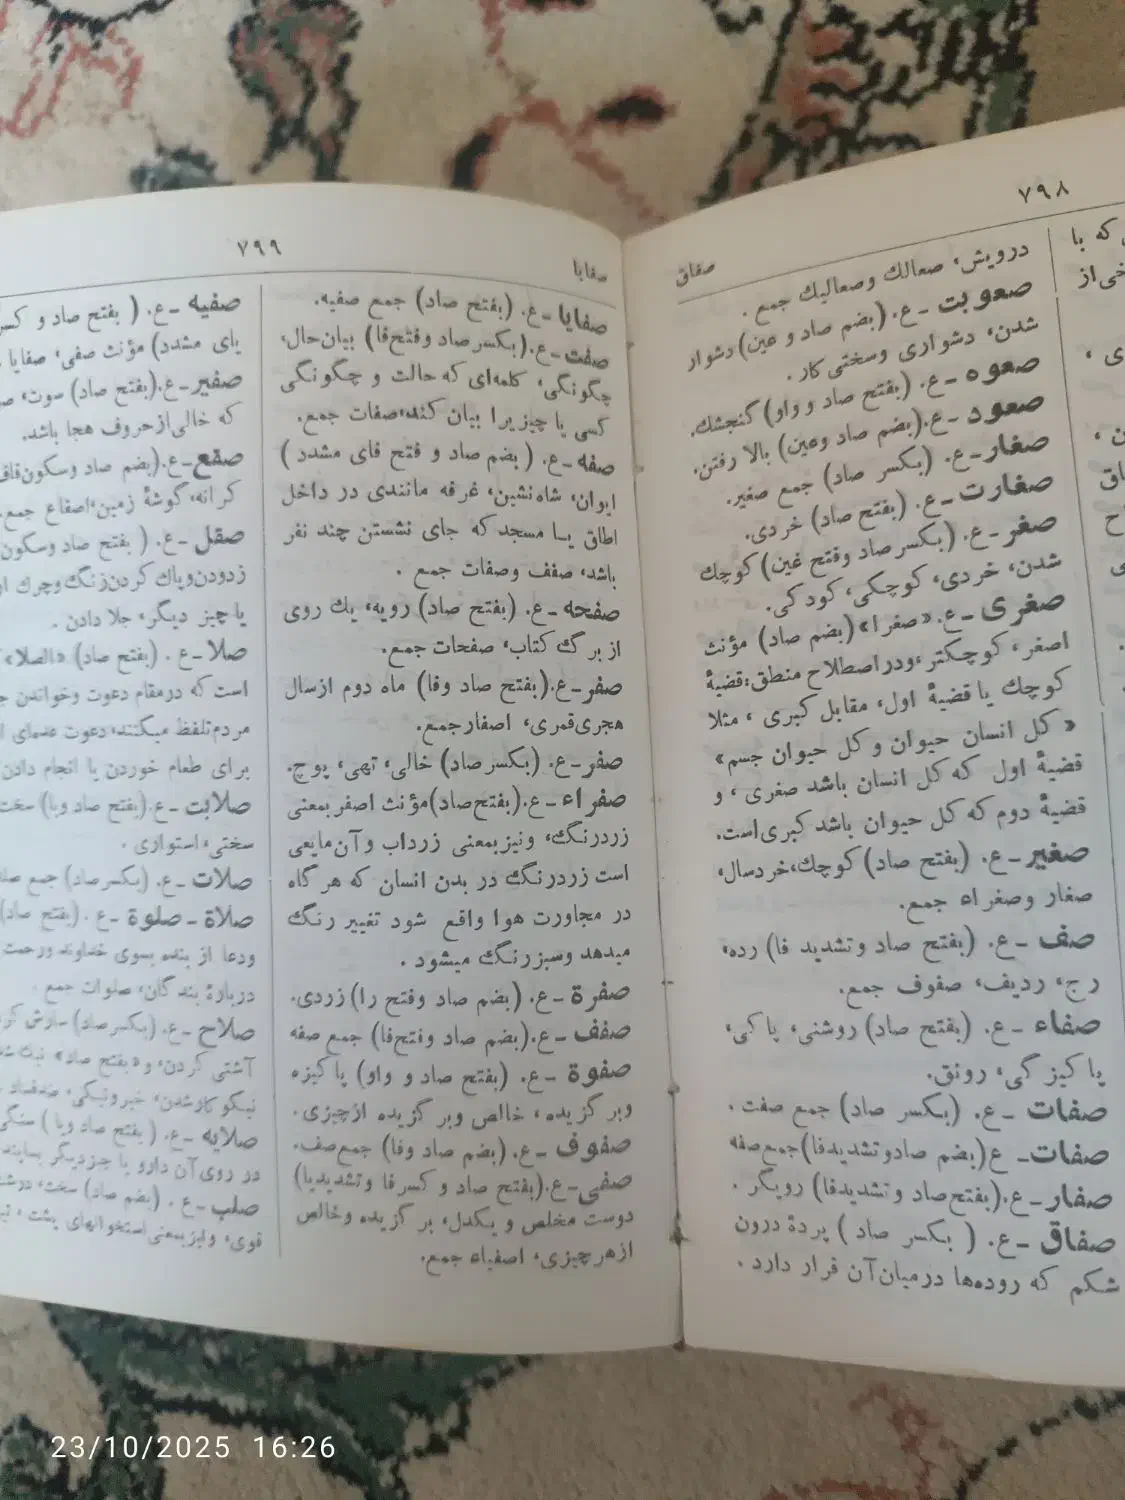 ۷۹۸
صفاق
ی که با
خی از
درویش، صعالك وصعالیك جمع .
صعوبت - ع. (بضم صاد و عین) دشوار
شدن، دشواری وسختی کار .
صعوه - ع. (بفتح صاد و واو) گنجشك.
صعود - ع.(بضم صاد وعین) بالا رفتن.
صغار - ع. (بکسر صاد) جمع صغیر.
صغارت - ع. (بفتح صاد) خردی.
صغر - ع. (بکسر صاد وفتح غین) کوچك
شدن، خردی، کوچکی، کودکی.
صغری - ع. «صغرا» (بضم صاد) مؤنث
اصغر، کوچکتر، ودراصطلاح منطق: قضیهٔ
کوچك یا قضیهٔ اول، مقابل کبری ، مثلا
« کل انسان حیوان و کل حیوان جسم»
قضیهٔ اول که کل انسان باشد صغری ، و
قضیهٔ دوم که کل حیوان باشد کبری است.
صغیر - ع. (بفتح صاد) کوچك، خردسال،
صغار وصغراء جمع.
صف - ع. (بفتح صاد وتشدید فا) رده،
رج، ردیف، صفوف جمع.
صفاء - ع. (بفتح صاد) روشنی، پاکی،
پاکیزگی، رونق.
صفات - ع. (بکسر صاد) جمع صفت .
صفات - ع(بضم صادوتشدیدفا)جمع صفه
صفار - ع.(بفتح صاد وتشدیدفا) رویگر .
صفاق - ع. ( بکسر صاد ) پردهٔ درون
شکم که روده‌ها درمیان آن قرار دارد .
۷۹۹
صفایا
صفایا - ع. (بفتح صاد) جمع صفیه.
صفت - ع.(بکسرصاد وفتح‌فا) بیان‌حال،
چگونگی، کلمه‌ای که حالت و چگونگی
کسی یا چیزیرا بیان کند،صفات جمع.
صفه - ع. ( بضم صاد و فتح فای مشدد )
ایوان، شاه‌نشین، غرفه مانندی در داخل
اطاق یـا مسجد که جای نشستن چند نفر
باشد، صفف وصفات جمع .
صفحه - ع. (بفتح صاد) رویه، یك روی
از برگ کتاب، صفحات جمع.
صفر - ع.(بفتح صاد وفا) ماه دوم ازسال
هجری‌قمری، اصفارجمع.
صفر - ع. (بکسرصاد) خالی، تهی، پوچ.
صفراء - ع.(بفتح‌صاد)مؤنث اصفر بمعنی
زردرنگ، ونیزبمعنی زرداب و آن‌مایعی
است زردرنگ در بدن انسان که هرگاه
در مجاورت هوا واقع شود تغییر رنگ
میدهد وسبزرنگ میشود .
صفرة - ع. (بضم صاد وفتح را) زردی.
صفف - ع.(بضم صاد وفتح‌فا) جمع صفه
صفوة - ع. (بفتح صاد و واو) پاکیزه
وبرگزیده ، خالص وبرگزیده ازچیزی.
صفوف - ع. (بضم صاد وفا) جمع صف.
صفی - ع.(بفتح صاد و کسرفا وتشدیدیا)
دوست مخلص و یکدل، برگزیده وخالص
ازهرچیزی، اصفیاء جمع.
صفیه - ع. ( بفتح صاد و کسر
یای مشدد) مؤنث صفی، صفایا
صفیر - ع.(بفتح صاد) سوت،
که خالی ازحروف هجا باشد.
صقع - ع.(بضم صاد وسکون‌قاف
کرانه، گوشهٔ زمین، اصقاع جمع.
صقل - ع. ( بفتح صاد وسکون
زدودن‌وپاك کردن‌زنگ‌وچرك از
یا چیز دیگر، جلا دادن .
صلا - ع . (بفتح صاد) «الصلا»
است که درمقام دعوت وخواندن
مردم‌تلفظ میکنند، دعوت عده‌ای
برای طعام خوردن یا انجام دادن
صلابت - ع.(بفتح صاد وبا) سخت
سختی، استواری .
صلات - ع. (بکسرصاد) جمع
صلاة - صلوة - ع . (بفتح صاد)
ودعا از بنده بسوی خداوند ورحمت
دربارهٔ بندگان، صلوات جمع .
صلاح - ع.(بکسرصاد) سازش
آشتی کردن، و«بفتح صاد» نیك
نیکوکارشدن، خیرونیکی، ضدفساد .
صلایه - ع. ( بفتح صاد ویا ) سنگی
در روی آن دارو یا چیزدیگر بسایند
صلب - ع . (بضم صاد) سخت، درشت
قوی، ونیزبمعنی‌استخوانهای پشت،